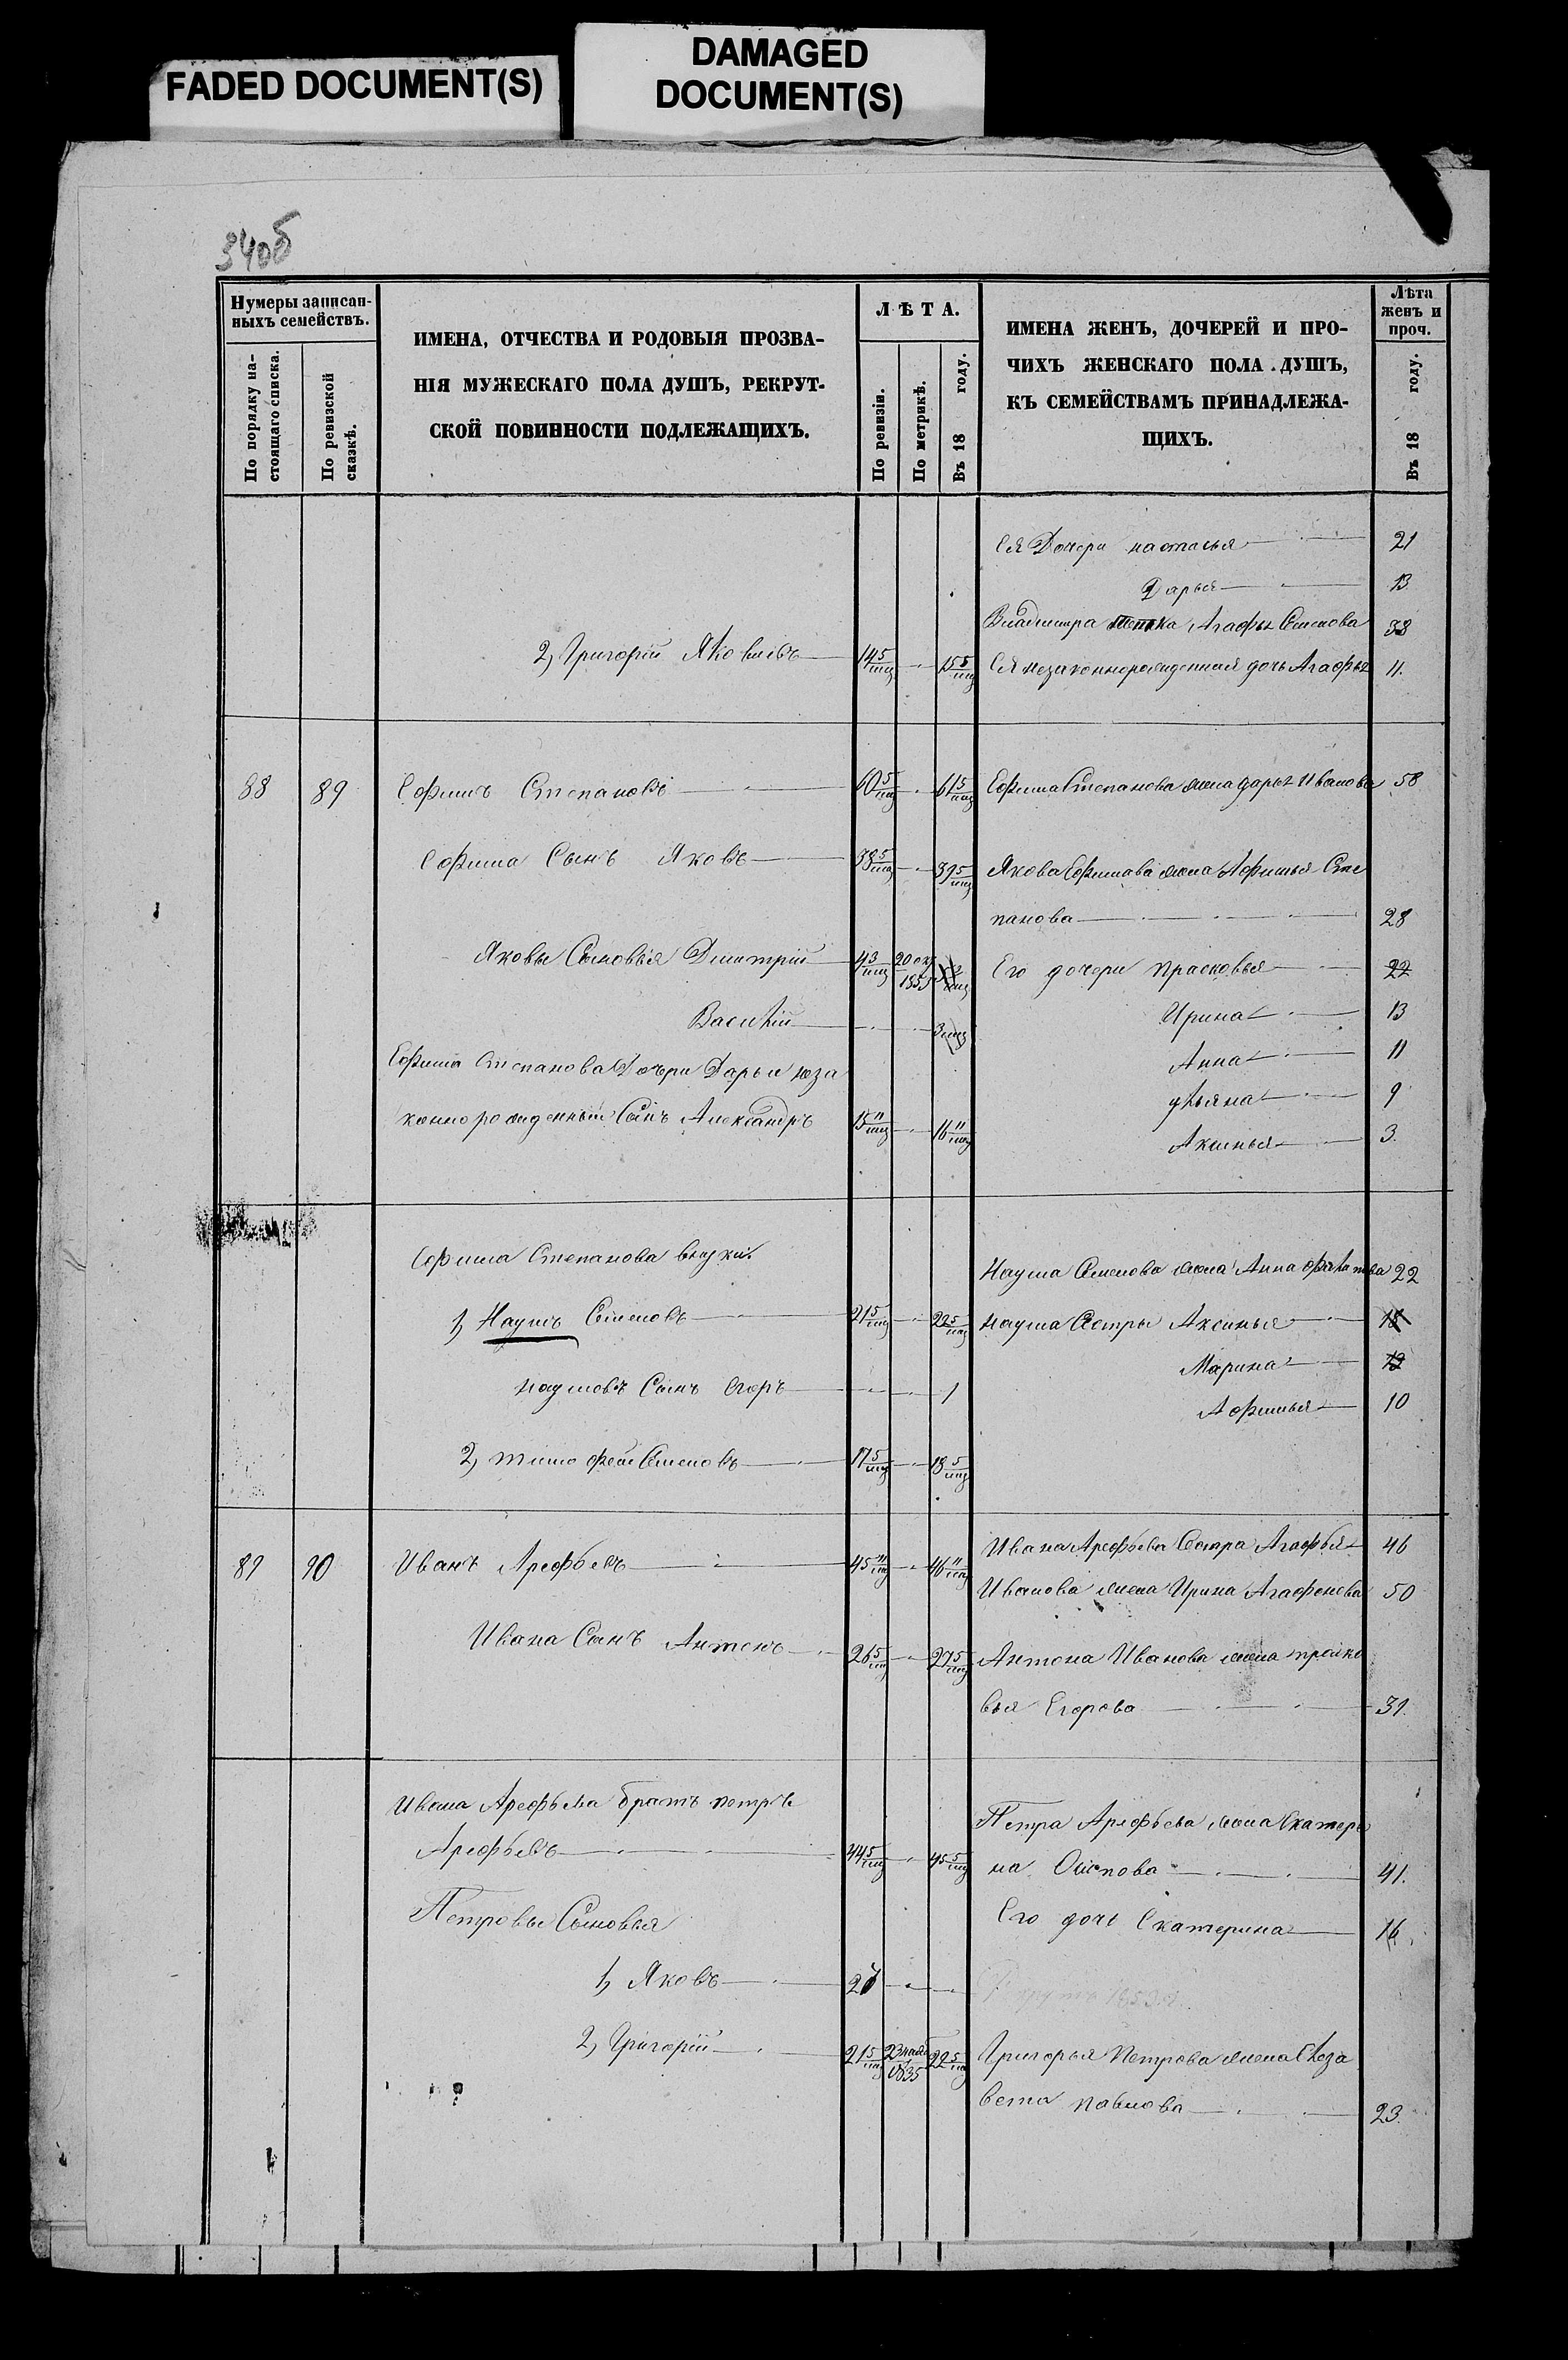 FADED DOCUMENT(S)
DAMAGED
DOCUMENT(S)
340б
Нумеры записан-
ныхъ семействъ.
По порядку на-
стоящаго списка.
По ревизской
сказкѣ.
ИМЕНА, ОТЧЕСТВА И РОДОВЫЯ ПРОЗВА-
НІЯ МУЖЕСКАГО ПОЛА ДУШЪ, РЕКРУТ-
СКОЙ ПОВИННОСТИ ПОДЛЕЖАЩИХЪ.
ЛѢТА.
По ревизіи.
По метрикѣ.
Въ 18 году.
ИМЕНА ЖЕНЪ, ДОЧЕРЕЙ И ПРО-
ЧИХЪ ЖЕНСКАГО ПОЛА ДУШЪ,
КЪ СЕМЕЙСТВАМЪ ПРИНАДЛЕЖА-
ЩИХЪ.
Лѣта
женъ и
проч.
Въ 18 году.
Ея Дочери настасья 21
Дарья 13
Владимира тетка Агафья Семенова 38
2, Григорій Яковлевъ 14 5/мц 15 5/мц Ея незаконнорожденная дочь Агафья 11.
88 89 Ефимъ Степановъ 60 5/мц 61 5/мц Ефима Степанова жена дарья Иванова 58
Ефима Сынъ Яковъ 38 5/мц 39 5/мц Якова Ефимова жена Афимья Сте
панова 28
Яковы Сыновья Дмитрій 4 3/мц 20 ок 1853 Его дочери прасковья 22
Василій 3 мц Ирина 13
Анна 11
Ефима Степанова Дочери Дарьи неза
ульяна 9
коннорожденный Сынъ Александръ 15 11/мц 16 11/мц
Аксинья 3.
Ефима Степанова внуки
Наума Семенова жена Анна 22
1, Наумъ Семеновъ 21 5/мц 22 5/мц наума Сестры Аксинья 18
Марина
наумовъ Сынъ Егоръ 1
Афимья 10
2, тимофей Семеновъ 17 5/мц 18 5/мц
89 90 Иванъ Арефьевъ 45 11/мц 46 11/мц Ивана Арефьева Сестра Агафья 46
Иванова жена Ирина Агафонова 50
Ивана Сынъ Антонъ 26 5/мц 27 5/мц Антона Иванова жена праско
вья Егорова 31.
Ивана Арефьева братъ петръ
Арефьевъ 44 5/мц 45 5/мц
Петра Арефьева жена Екатери
на Осипова 41.
Петровы Сыновья
Его дочь Екатерина 16
1, Яковъ
2, Григорій 21 5/мц 23 1835 22 5/мц Григорья Петрова жена Елиза
вета павлова 23.